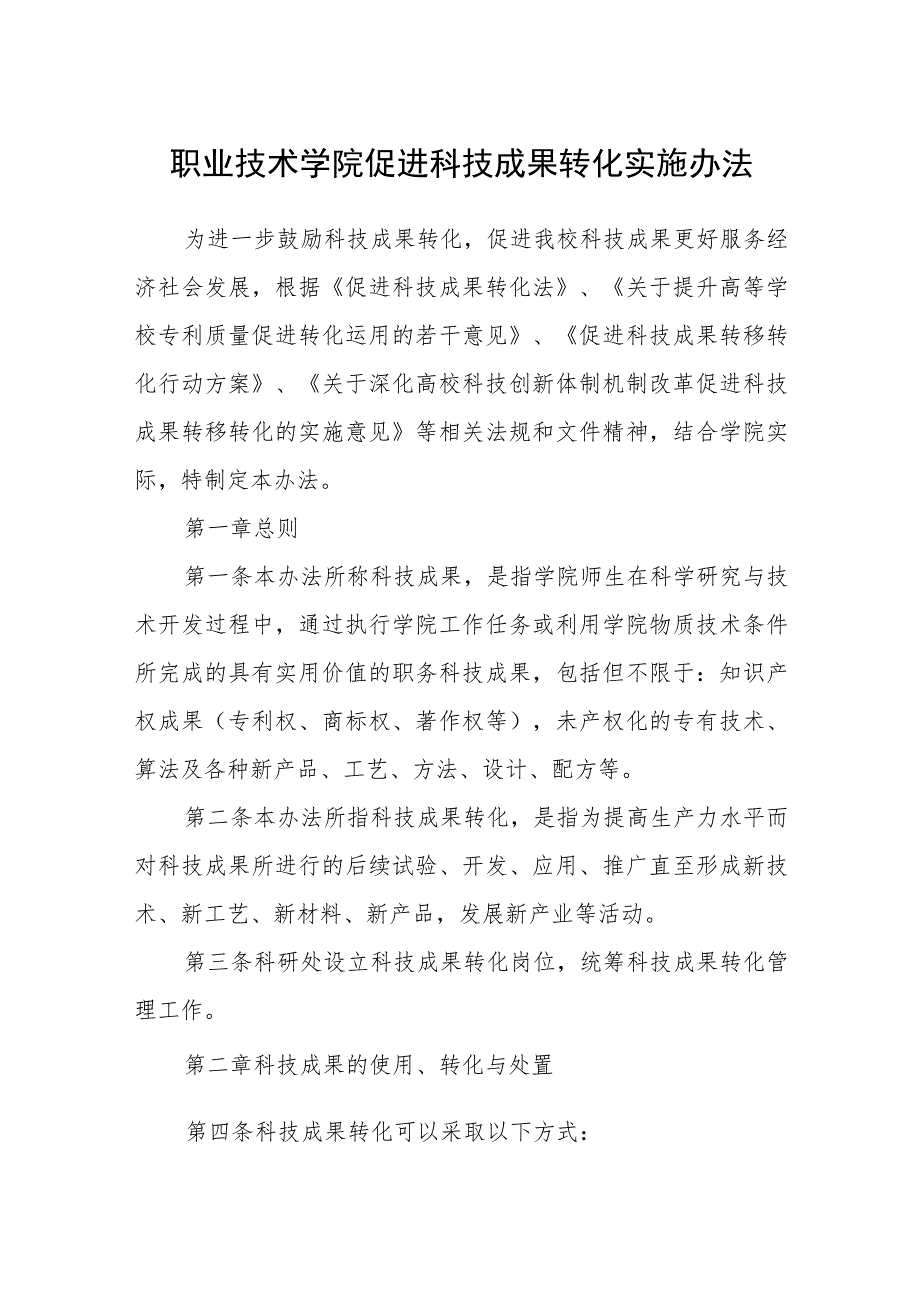 职业技术学院促进科技成果转化实施办法
为进一步鼓励科技成果转化，促进我校科技成果更好服务经
济社会发展，根据《促进科技成果转化法》、《关于提升高等学
校专利质量促进转化运用的若干意见》、《促进科技成果转移转
化行动方案》、《关于深化高校科技创新体制机制改革促进科技
成果转移转化的实施意见》等相关法规和文件精神，结合学院实
际，特制定本办法。
第一章总则
第一条本办法所称科技成果，是指学院师生在科学研究与技
术开发过程中，通过执行学院工作任务或利用学院物质技术条件
所完成的具有实用价值的职务科技成果，包括但不限于：知识产
权成果（专利权、商标权、著作权等），未产权化的专有技术、
算法及各种新产品、工艺、方法、设计、配方等。
第二条本办法所指科技成果转化，是指为提高生产力水平而
对科技成果所进行的后续试验、开发、应用、推广直至形成新技
术、新工艺、新材料、新产品，发展新产业等活动。
第三条科研处设立科技成果转化岗位，统筹科技成果转化管
理工作。
第二章科技成果的使用、转化与处置
第四条科技成果转化可以采取以下方式：